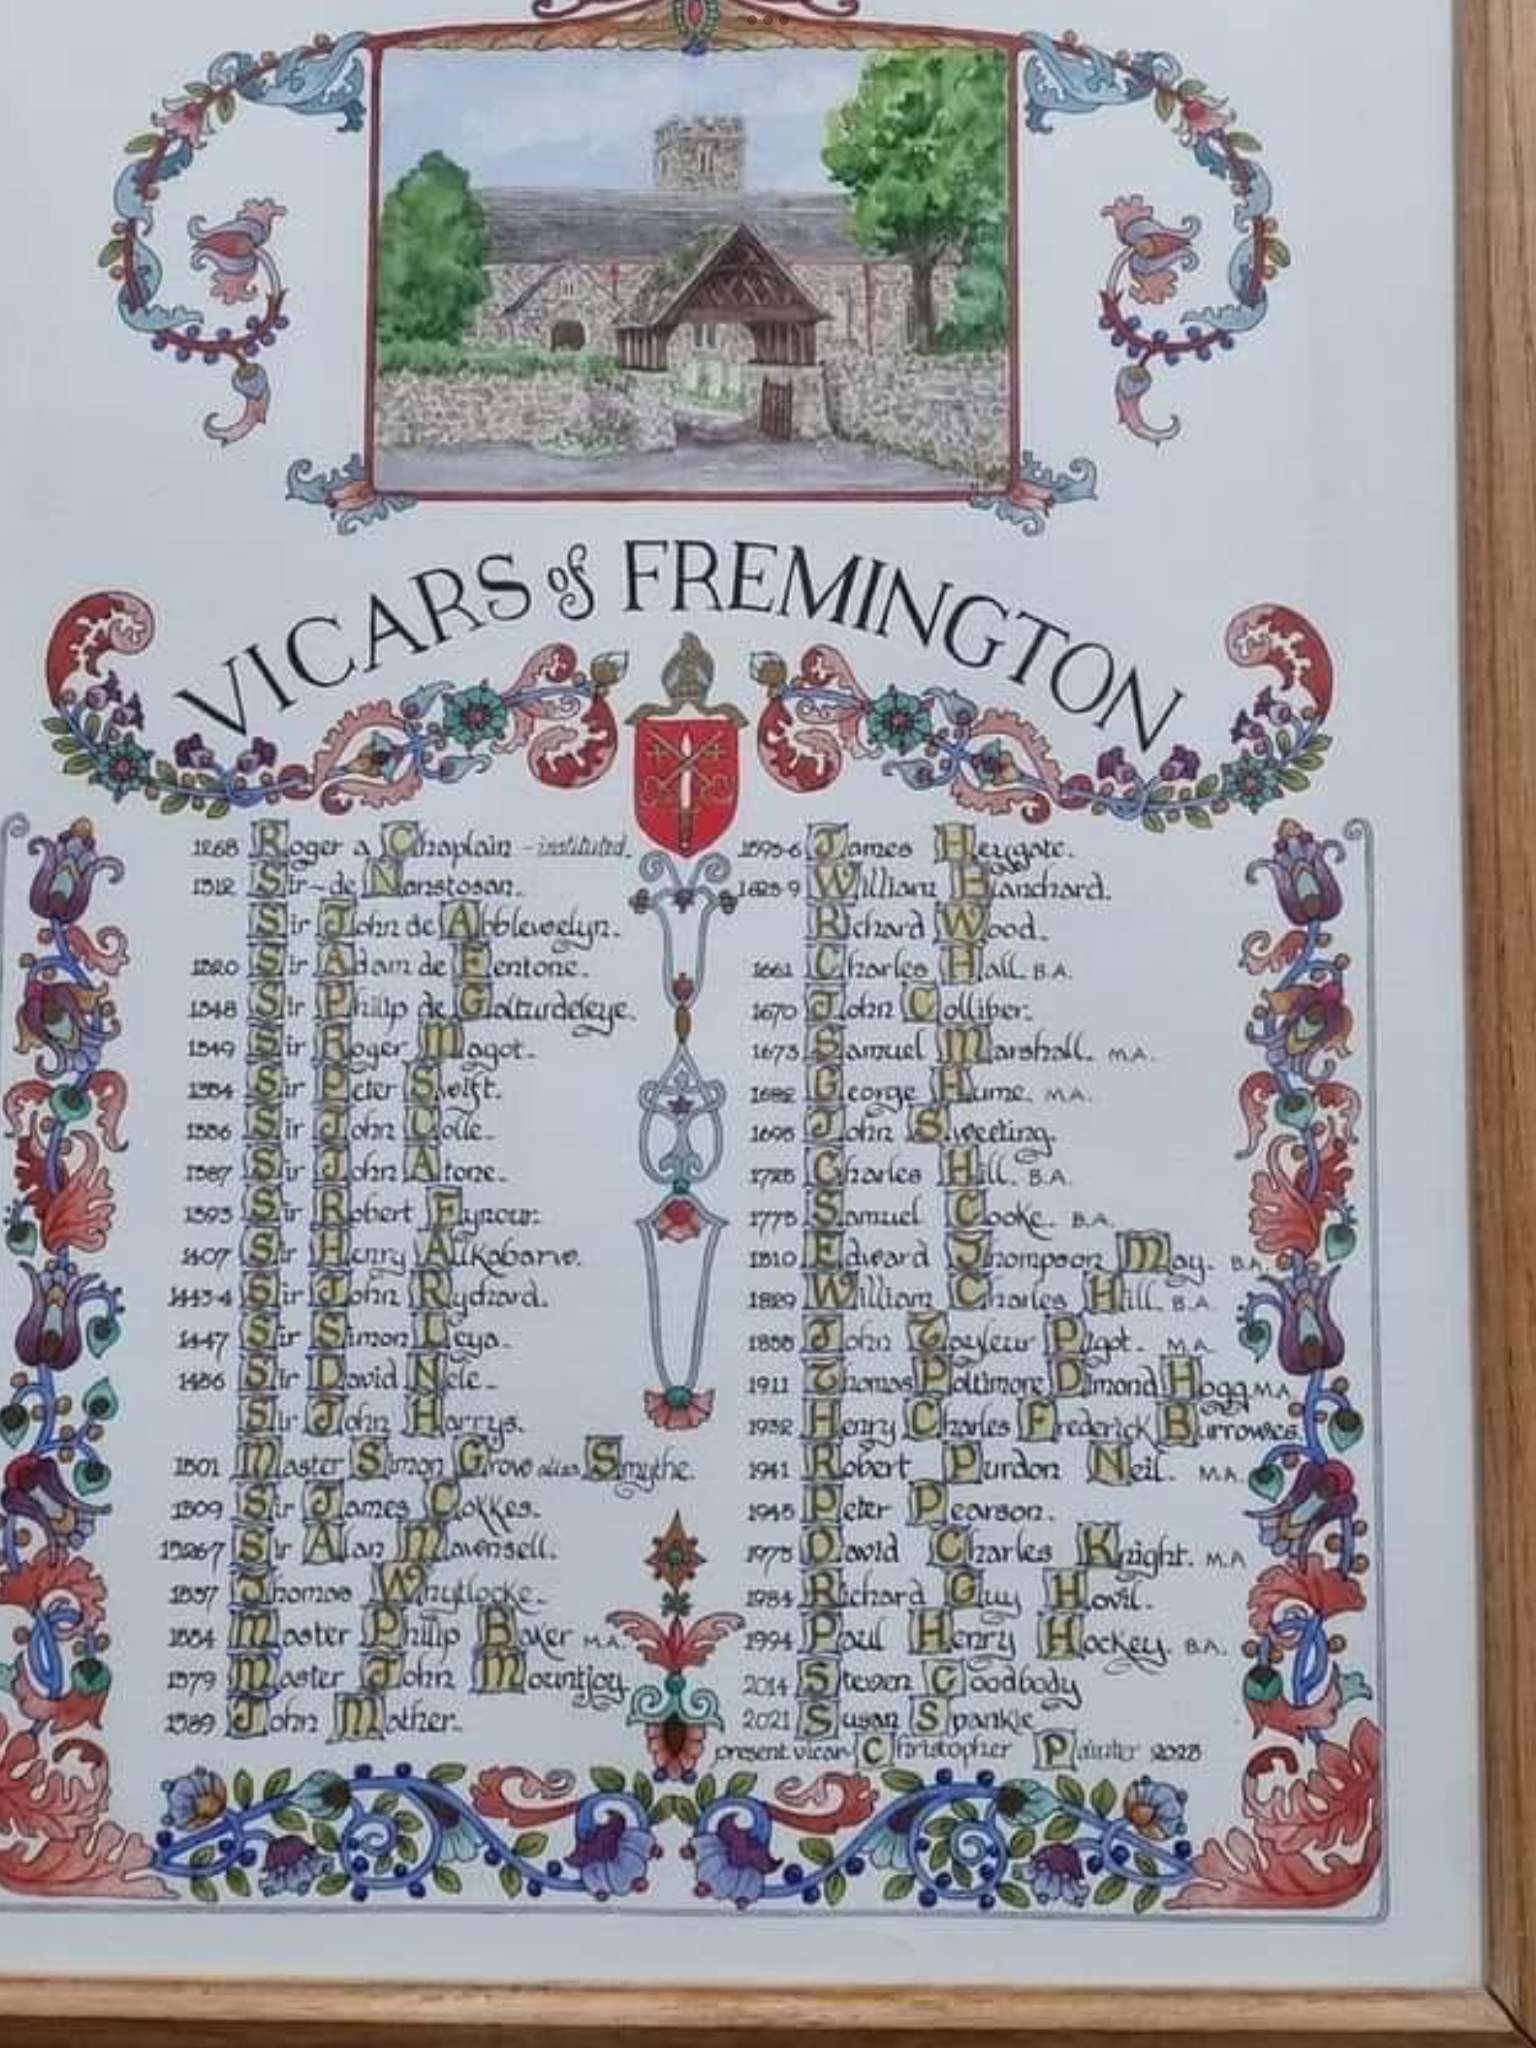 VICARS of FREMINGTON
1268 Roger a Chaplain - instituted.
1312 Sir ~ de Nanstosan.
Sir John de Abblewelyn.
1320 Sir Adam de Fentone.
1348 Sir Philip de Galturdeleye.
1349 Sir Roger Magot.
1354 Sir Peter Swift.
1356 Sir John Colle.
1387 Sir John Atone.
1393 Sir Robert Fynour.
1407 Sir Henry Alkabarwe.
1443-4 Sir John Rychard.
1447 Sir Simon Leys.
1486 Sir David Nele.
Sir John Harrys.
1501 Master Simon Grove alias Smythe.
1509 Sir James Cokkes.
1526-7 Sir Alan Mavensell.
1537 Thomas Whytlocke.
1554 Master Philip Baker M.A.
1579 Master John Mountjoy.
1589 John Mather.
1595-6 James Heygate.
1628-9 William Blanchard.
Richard Wood.
1661 Charles Hall. B.A.
1670 John Colliber.
1673 Samuel Marshall. M.A.
1682 George Hume. M.A.
1695 John Sweeting.
1725 Charles Hill. B.A.
1775 Samuel Cooke. B.A.
1810 Edward Thompson May. B.A.
1829 William Charles Hill. B.A.
1855 John Tayleur Pigot. M.A.
1911 Thomas Poltimore Dimond Hogg. M.A.
1932 Henry Charles Frederick Burrowes.
1941 Robert Purdon Neil. M.A.
1945 Peter Pearson.
1975 David Charles Knight. M.A
1984 Richard Guy Hovil.
1994 Paul Henry Hockey. B.A.
2014 Steven Goodbody
2021 Susan Spankie
present vicar Christopher Painter 2023